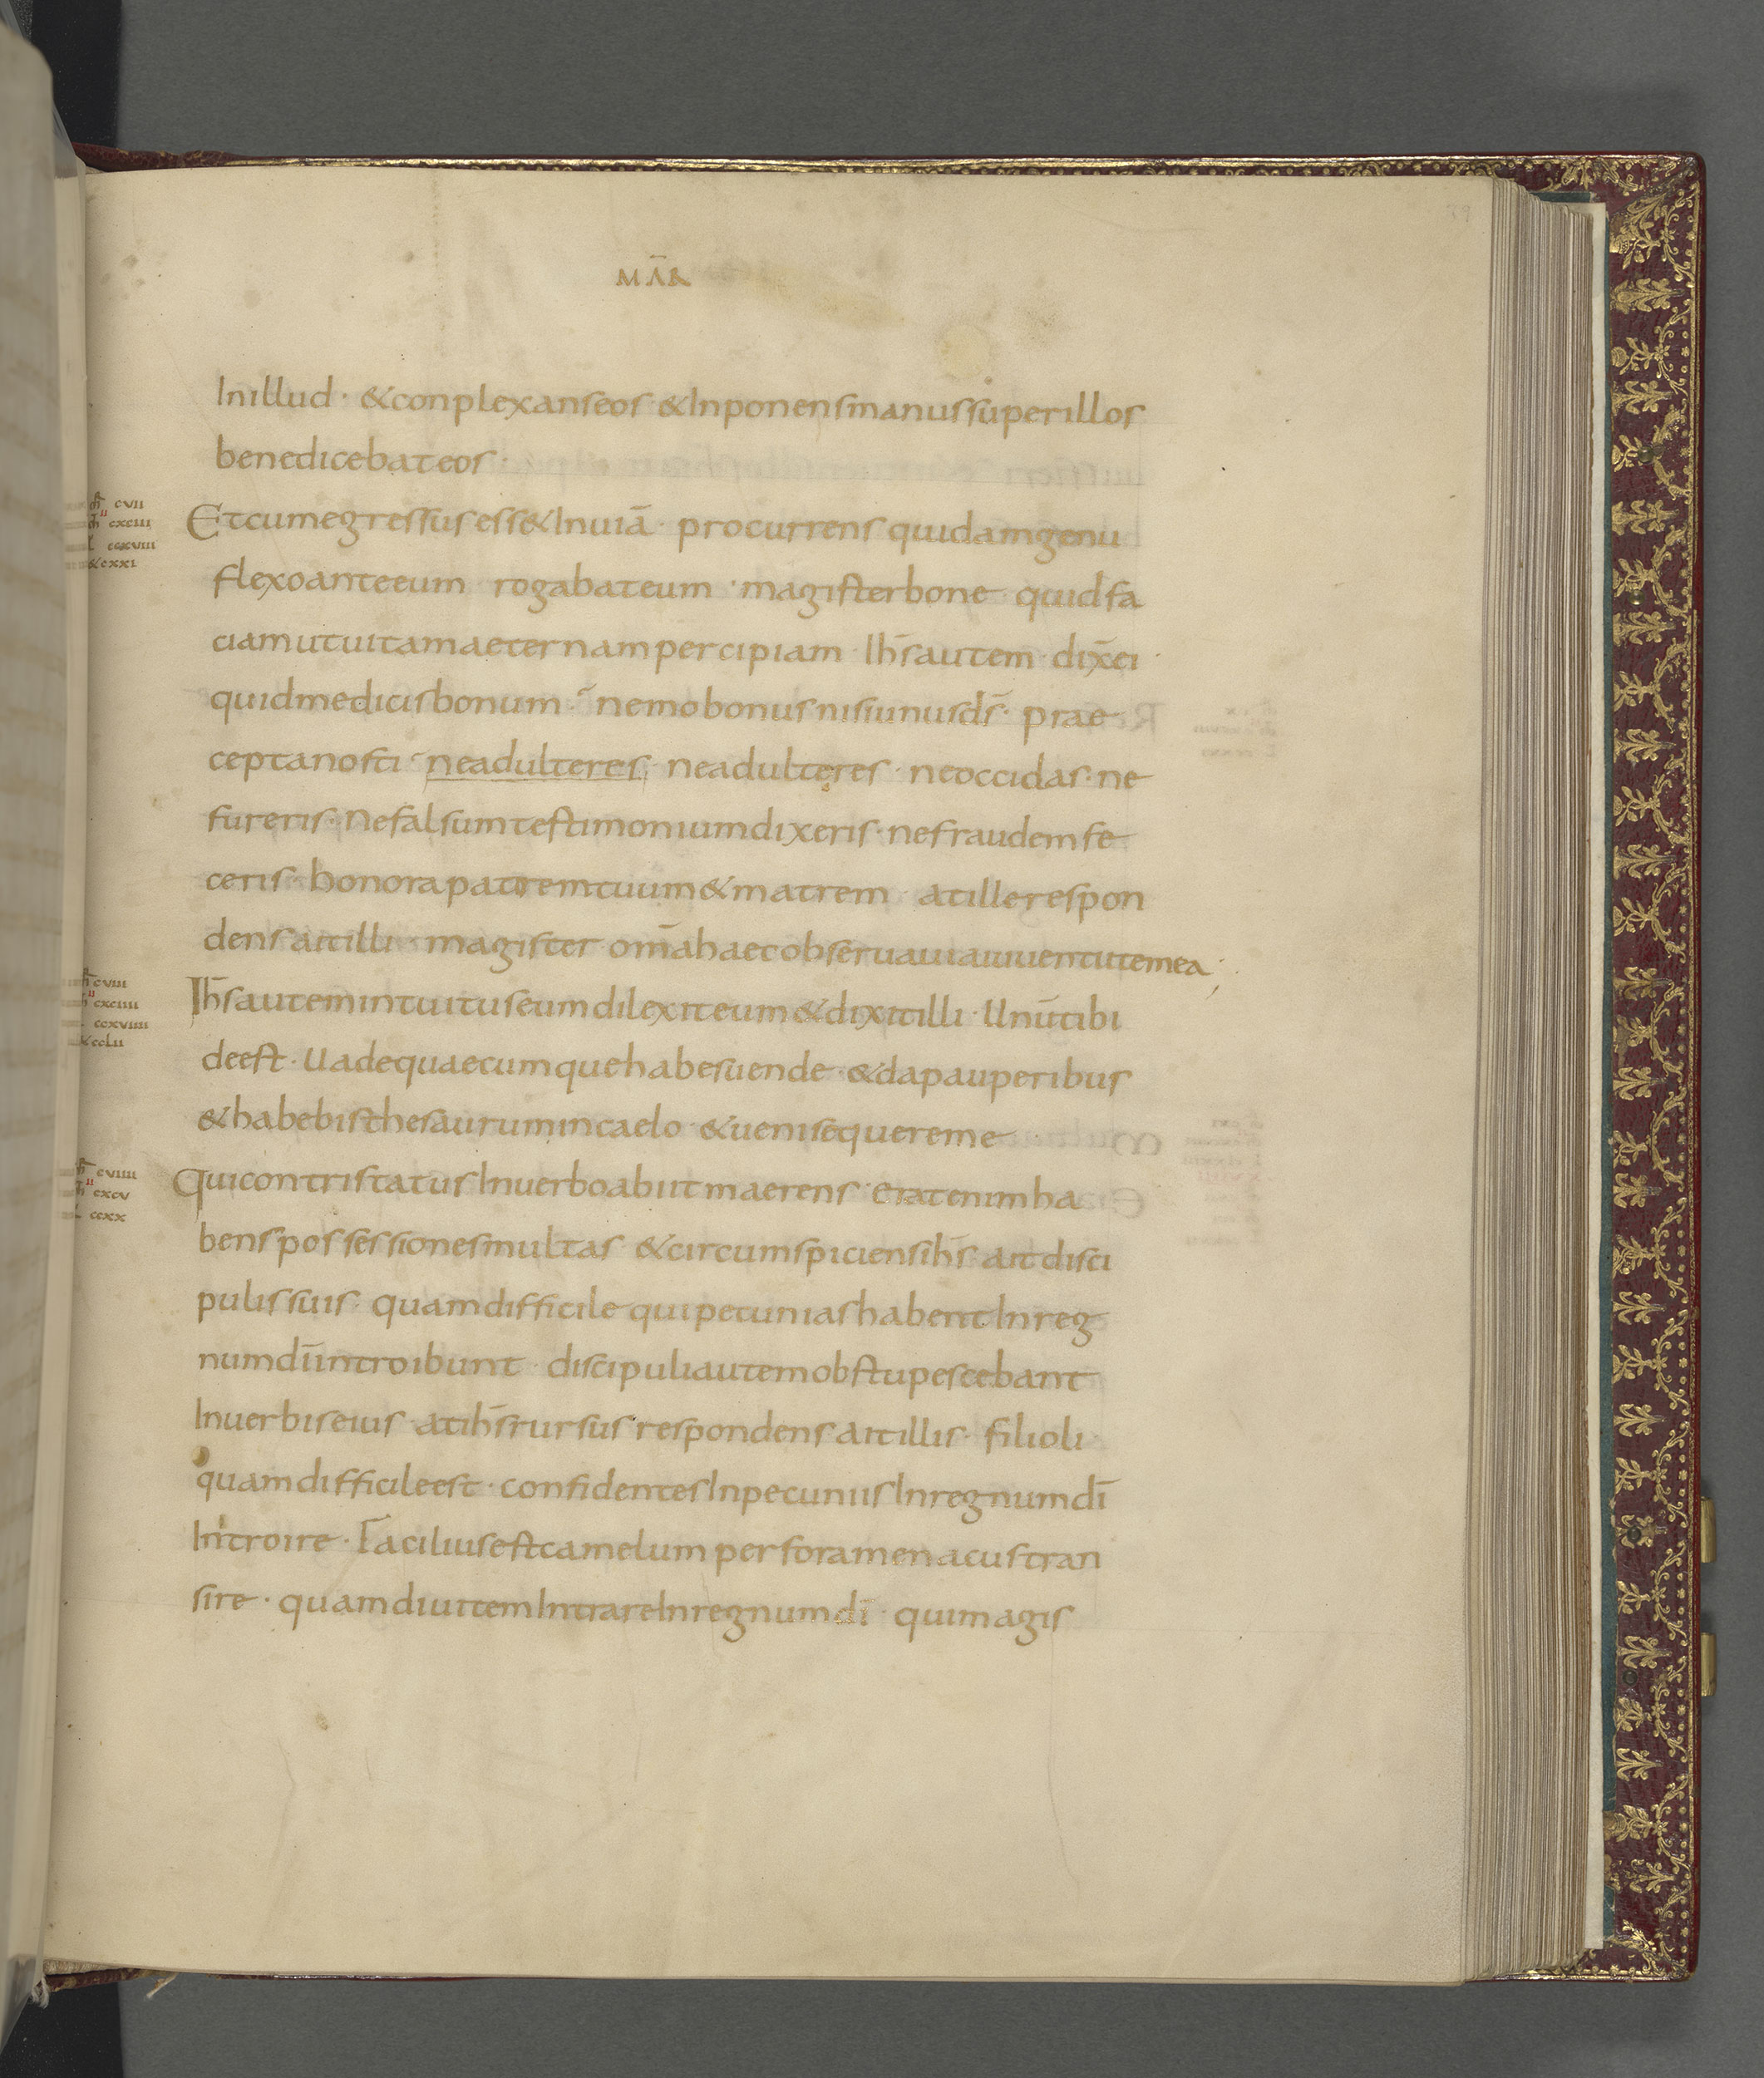 MAR̄
Inillud · &conplexanseos · &Inponensmanussuperillos
benedicebateos ·
cvii
cxciii
ccxviii
&cxxi
Etcumegressusess&Inuiā · procurrens quidamgenu
flexoanteeum rogabateum · magisterbone quidfa
ciamutuitamaeternampercipiam · Ih̄sautem dix̄ei ·
quidmedicisbonum · nemobonusnisiunusdš · prae
ceptanosti · neadulteres · neadulteres · neoccidas · ne
fureris · Nefalsumtestimoniumdixeris · nefraudemfe
ceris · honorapatremtuum&matrem · atillerespon
densaitilli · magister om̄ahaecobseruauiaiuuentutemea ·
cviii
cxciiii
ccxviiii
&cclii
Ih̄sautemintuituseumdilexiteum&dixitilli · Unūtibi
deest · Uadequaecumquehabesuende · &dapauperibus
&habebisthesaurumincaelo · &uenisequereme
cviiii
cxcv
ccxx
QuicontristatusInuerboabiitmaerens · eratenimha
benspossessionesmultas · &circumspiciensih̄s · aitdisci
pulissuis · quamdifficile quipecuniashabentInreg
numdīintroibunt · discipuliautemobstupescebant
Inuerbiseius · atih̄srursus respondensaitillis · filioli ·
quamdifficileest · confidentesInpecuniisInregnumdī
Introire · Faciliusestcamelumperforamenacustran
sire · quamdiuitemIntrareInregnumdī · quimagis